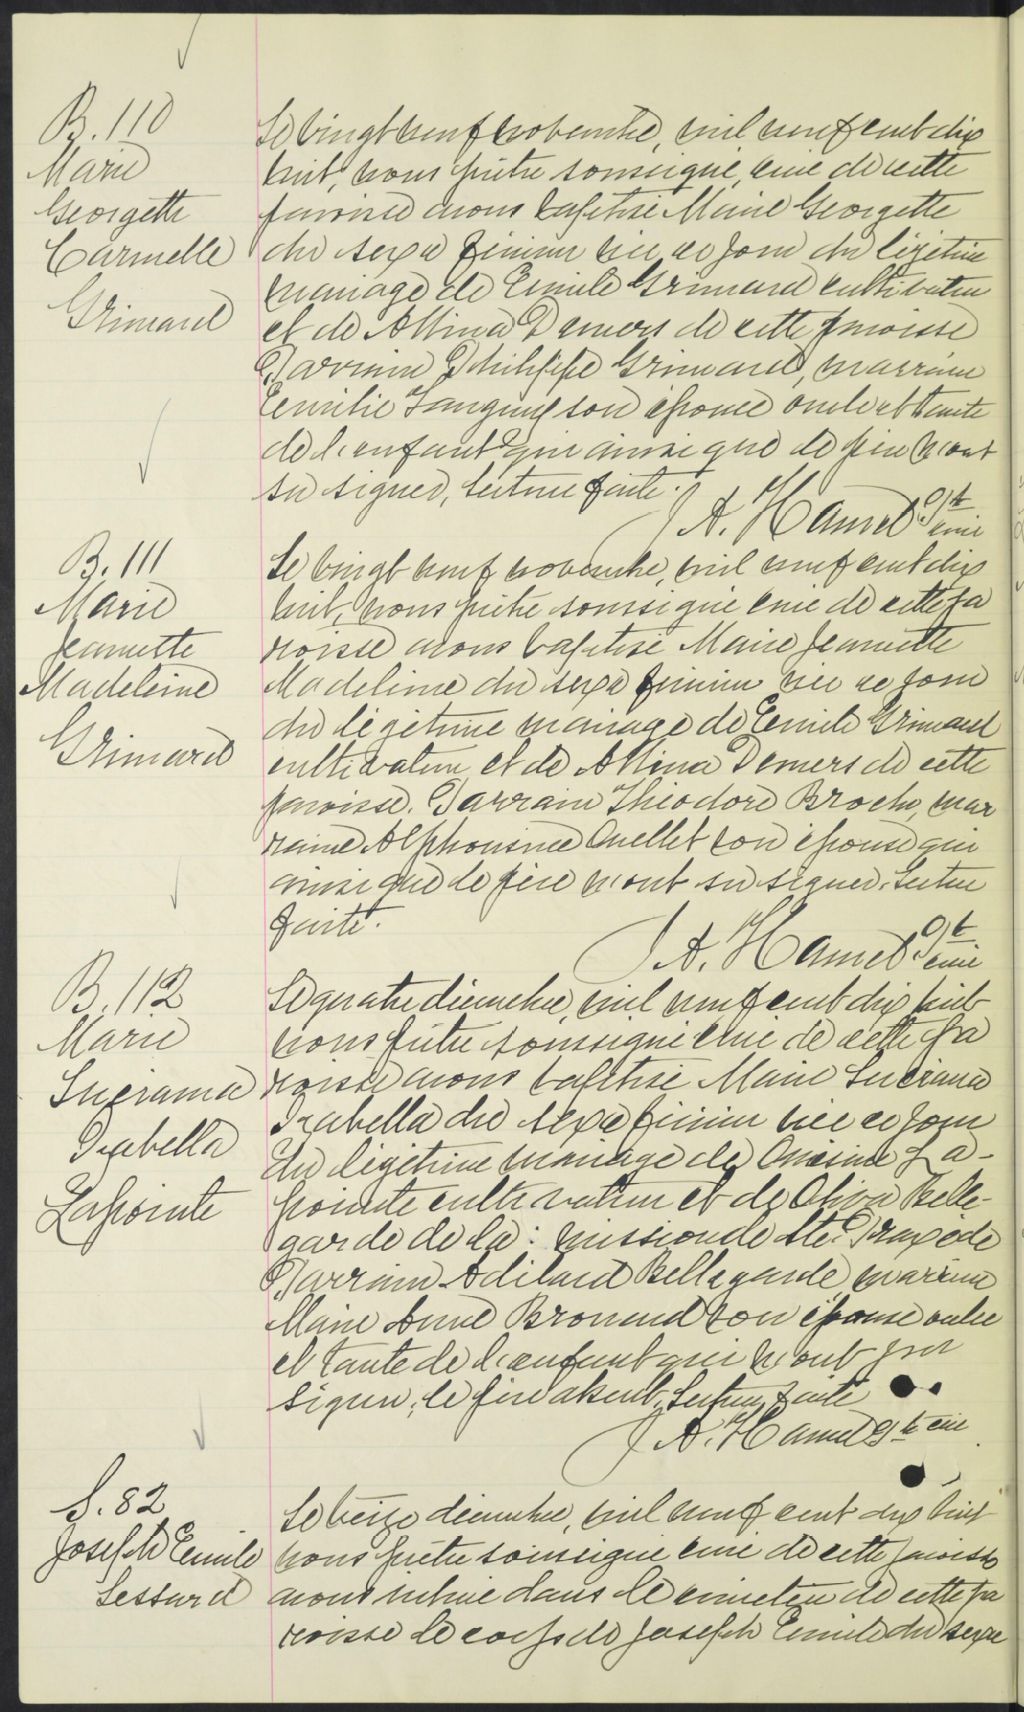 B. 110
Marie
Georgette
Carmelle
Grimard
Le vingt neuf novembre, mil neuf cent dix
huit, nous prêtre soussigné, curé de cette
paroisse avons baptisé Marie Georgette
du sexe féminin née ce jour du légitime
mariage de Emile Grimard cultivateur
et de Albina Demers de cette paroisse
Parrain Philippe Grimard, marraine
Emilie son épouse oncle et tante
de l'enfant qui ainsi que le père n'ont
su signer, lecture faite.
J A. Hamel Ptr
curé
B. 111
Marie
Jeannette
Madeleine
Grimard
Le vingt neuf novembre, mil neuf cent dix
huit, nous prêtre soussigné curé de cette pa
roisse avons baptisé Marie Jeannette
Madeleine du sexe féminin née ce jour
du légitime mariage de Emile Grimard
cultivateur et de Albina Demers de cette
paroisse. Parrain Théodore Brochu, mar
raine Alphonsine Ouellet son épouse qui
ainsi que le père n'ont su signer. Lecture
faite.
J A. Hamel Ptr
curé
B. 112
Marie
Lucianna
Isabella
Lapointe
Le quatre décembre, mil neuf cent dix huit
nous prêtre soussigné curé de cette pa
roisse avons baptisé Marie Lucianna
Isabella du sexe féminin née ce jour
du légitime mariage de Onésime La-
pointe cultivateur et de Oliva Belle-
garde de la: mission de Ste. Praxède
Parrain Adélard Bellegarde marraine
Marie Anne son épouse oncle
et tante de l'enfant qui n'ont pu
signer, le père absent. Lecture faite
J A. Hamel Ptr curé
S. 82
Joseph Emile
Lessard
Le treize décembre, mil neuf cent dix huit
nous prêtre soussigné curé de cette paroisse
avons inhumé dans le cimetière de cette pa
roisse le corps de Joseph Emile du sexe